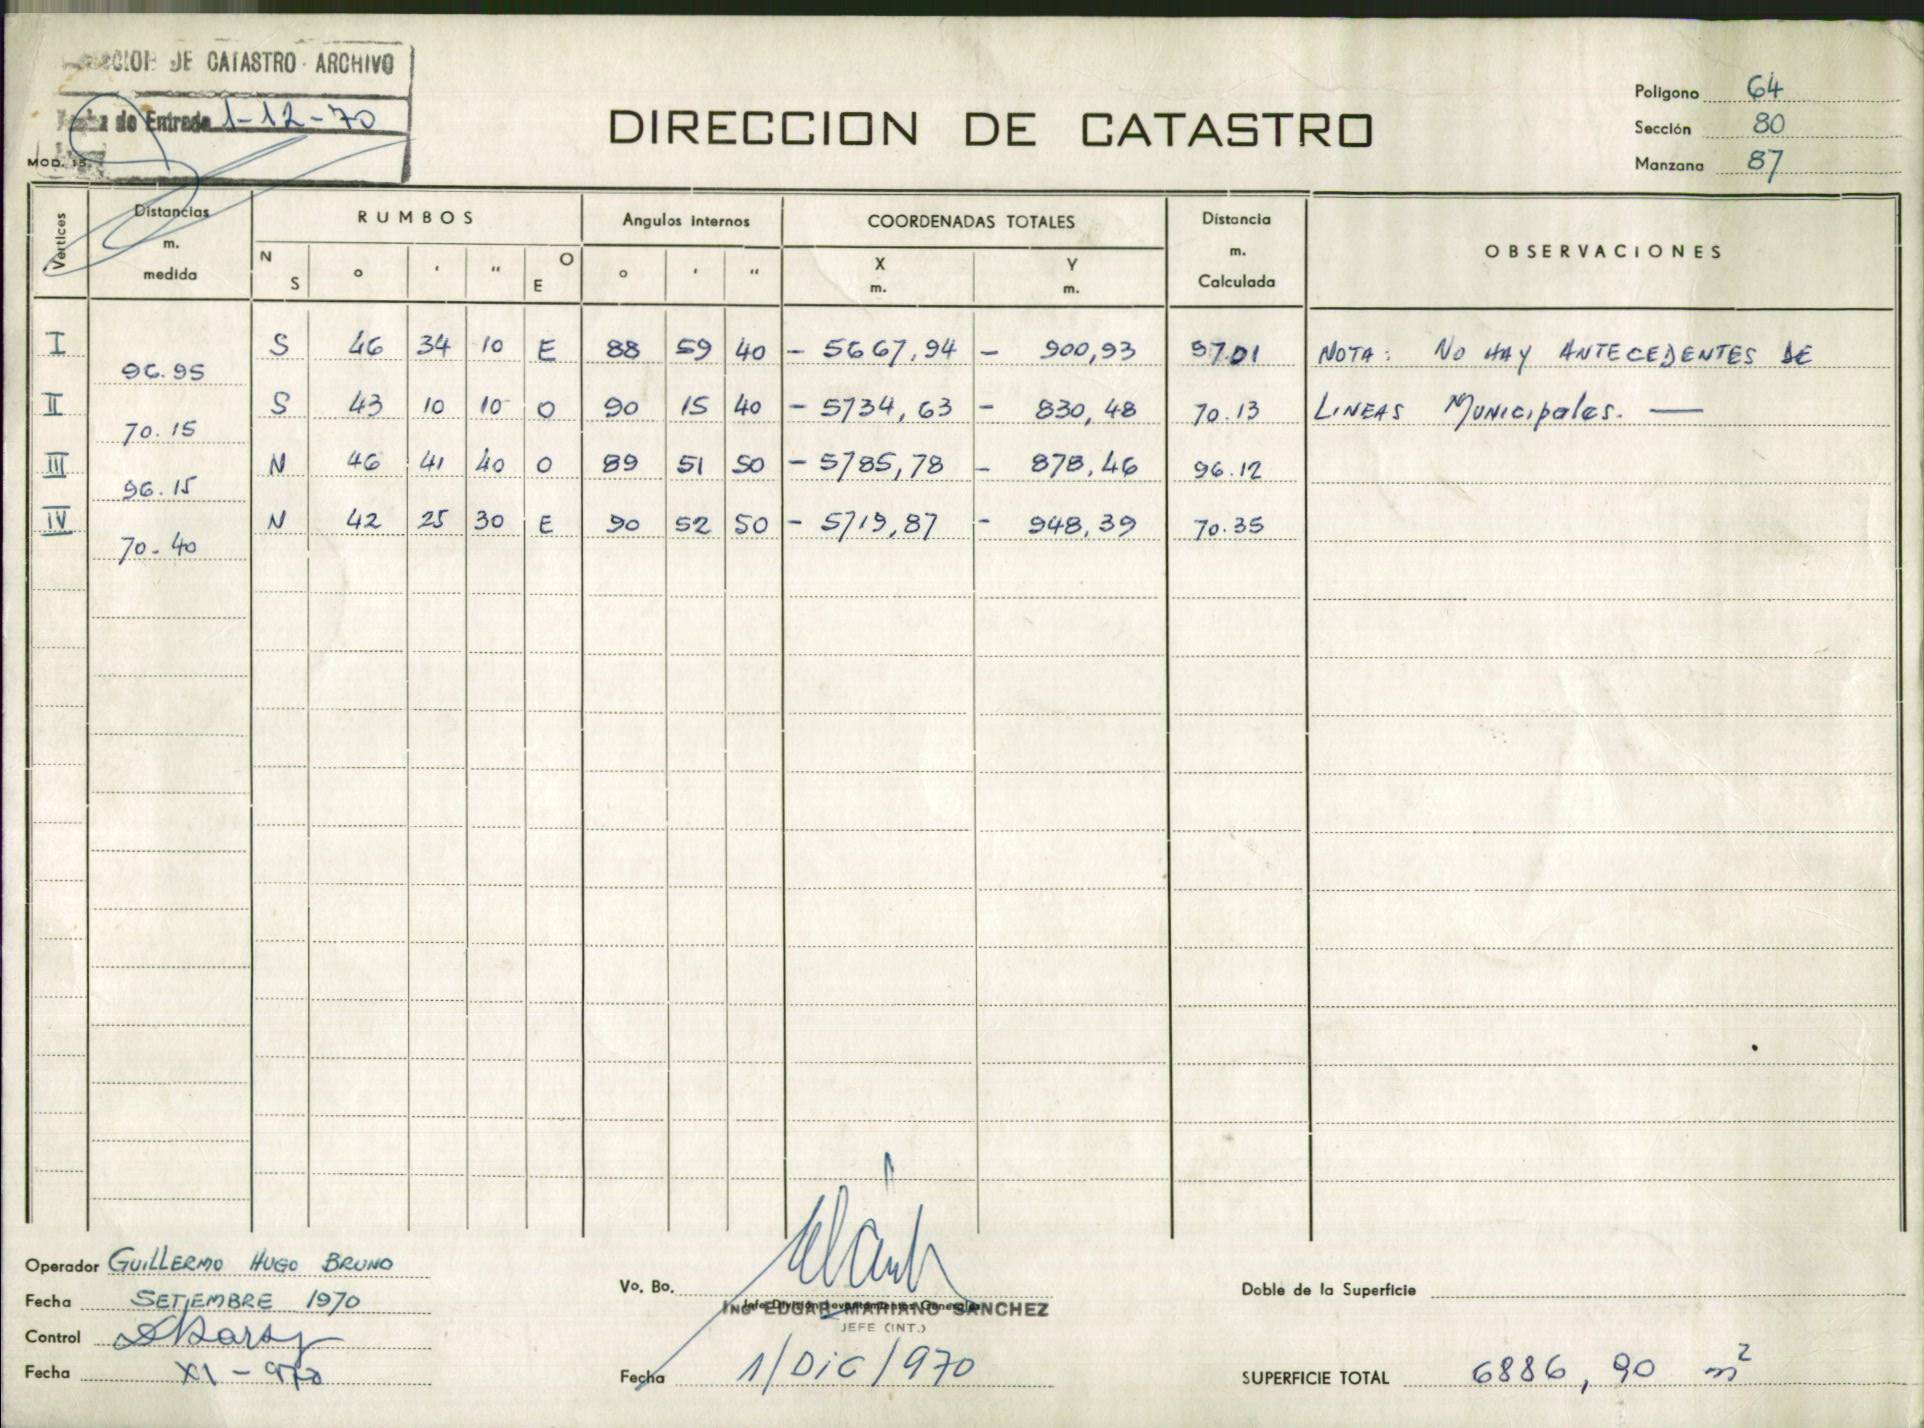 DE CATASTRO - ARCHIVO
de Entrada 1-12-70
MOD. 15.
DIRECCION DE CATASTRO
Poligono 64
Sección 80
Manzana 87
Vertices Distancias m. medida RUMBOS Angulos Internos COORDENADAS TOTALES Distancia m. Calculada OBSERVACIONES
N S ° ' " O E ° ' " X m. Y m.
I S 46 34 10 E 88 59 40 - 5667,94 - 900,93 97.01 NOTA: NO HAY ANTECEDENTES DE
96.95
II S 43 10 10 O 90 15 40 - 5734,63 - 830,48 70.13 LINEAS MUNICIPALES. —
70.15
III N 46 41 40 O 89 51 50 - 5785,78 - 878,46 96.12
96.15
IV N 42 25 30 E 90 52 50 - 5719,87 - 948,39 70.35
70.40
Operador GUILLERMO HUGO BRUNO
Fecha SETIEMBRE 1970
Control
Fecha XI - 970
Vo. Bo.
Jefe División Levantamientos Generales
ING° EDGAR MARIANO SANCHEZ
JEFE (INT.)
Fecha 1/DIC/970
Doble de la Superficie
SUPERFICIE TOTAL 6886,90 m²